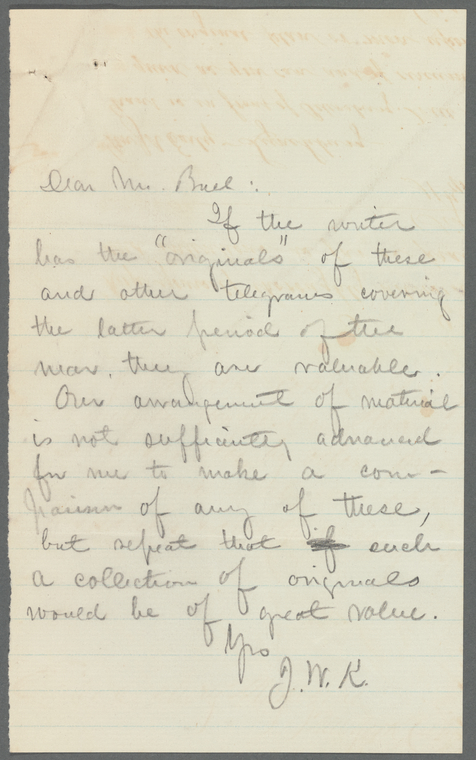 Dear Mr. Buel:
If the writer
has the "originals" of these
and other telegrams covering
the latter period of the
war, they are valuable.
Our arrangement of material
is not sufficiently advanced
for me to make a com-
parison of any of these,
but repeat that such
a collection of originals
would be of great value.
Yrs
J. W. K.